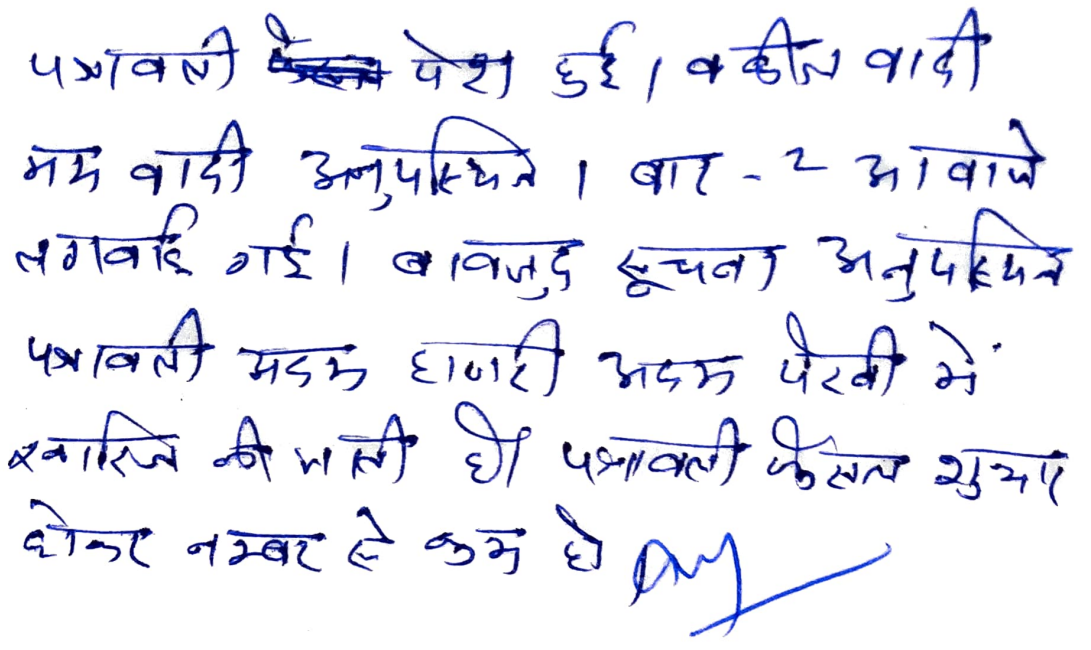 पत्रावली पेश हुई। वकील वादी
मय वादी अनुपस्थित । बार - 2 आवाजे
लगवाई गई। बावजुद सूचना अनुपस्थित
पत्रावली अदम हाजरी अदम पेरवी में
खारिज की जाती है। पत्रावली फेसल शुमार
होकर नम्बर से कम हो